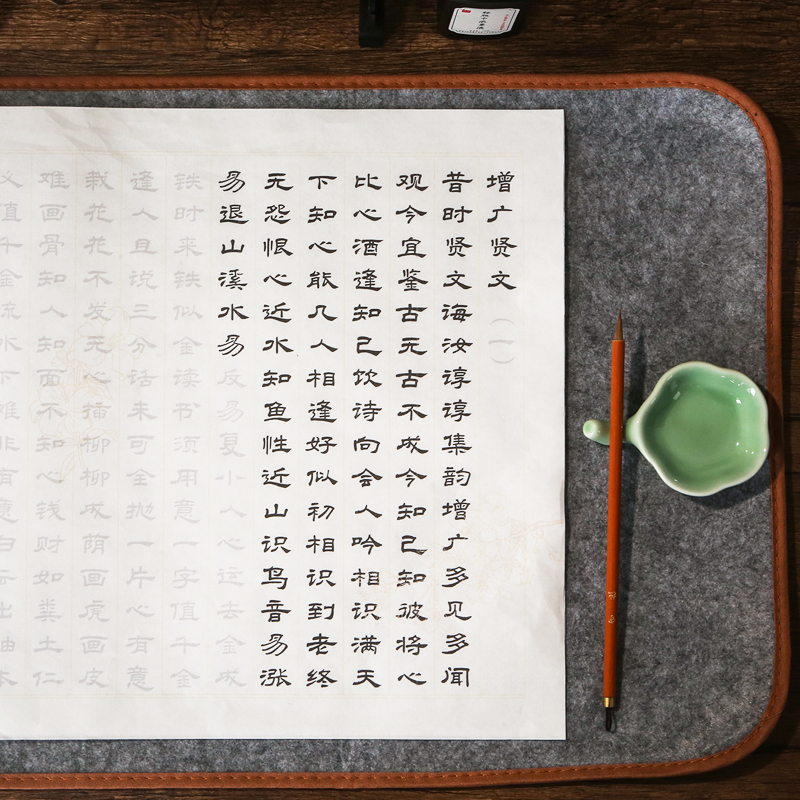 增广贤文（一）
昔时贤文诲汝谆谆集韵增广多见多闻
观今宜鉴古无古不成今知己知彼将心
比心酒逢知己饮诗向会人吟相识满天
下知心能几人相逢好似初相识到老终
无怨恨心近水知鱼性近山识鸟音易涨
易退山溪水易反易复小人心运去金成
铁时来铁似金读书须用意一字值千金
逢人且说三分话未可全抛一片心有意
栽花花不发无心插柳柳成荫画虎画皮
难画骨知人知面不知心钱财如粪土仁
义值千金流水下滩非有意白云出岫本